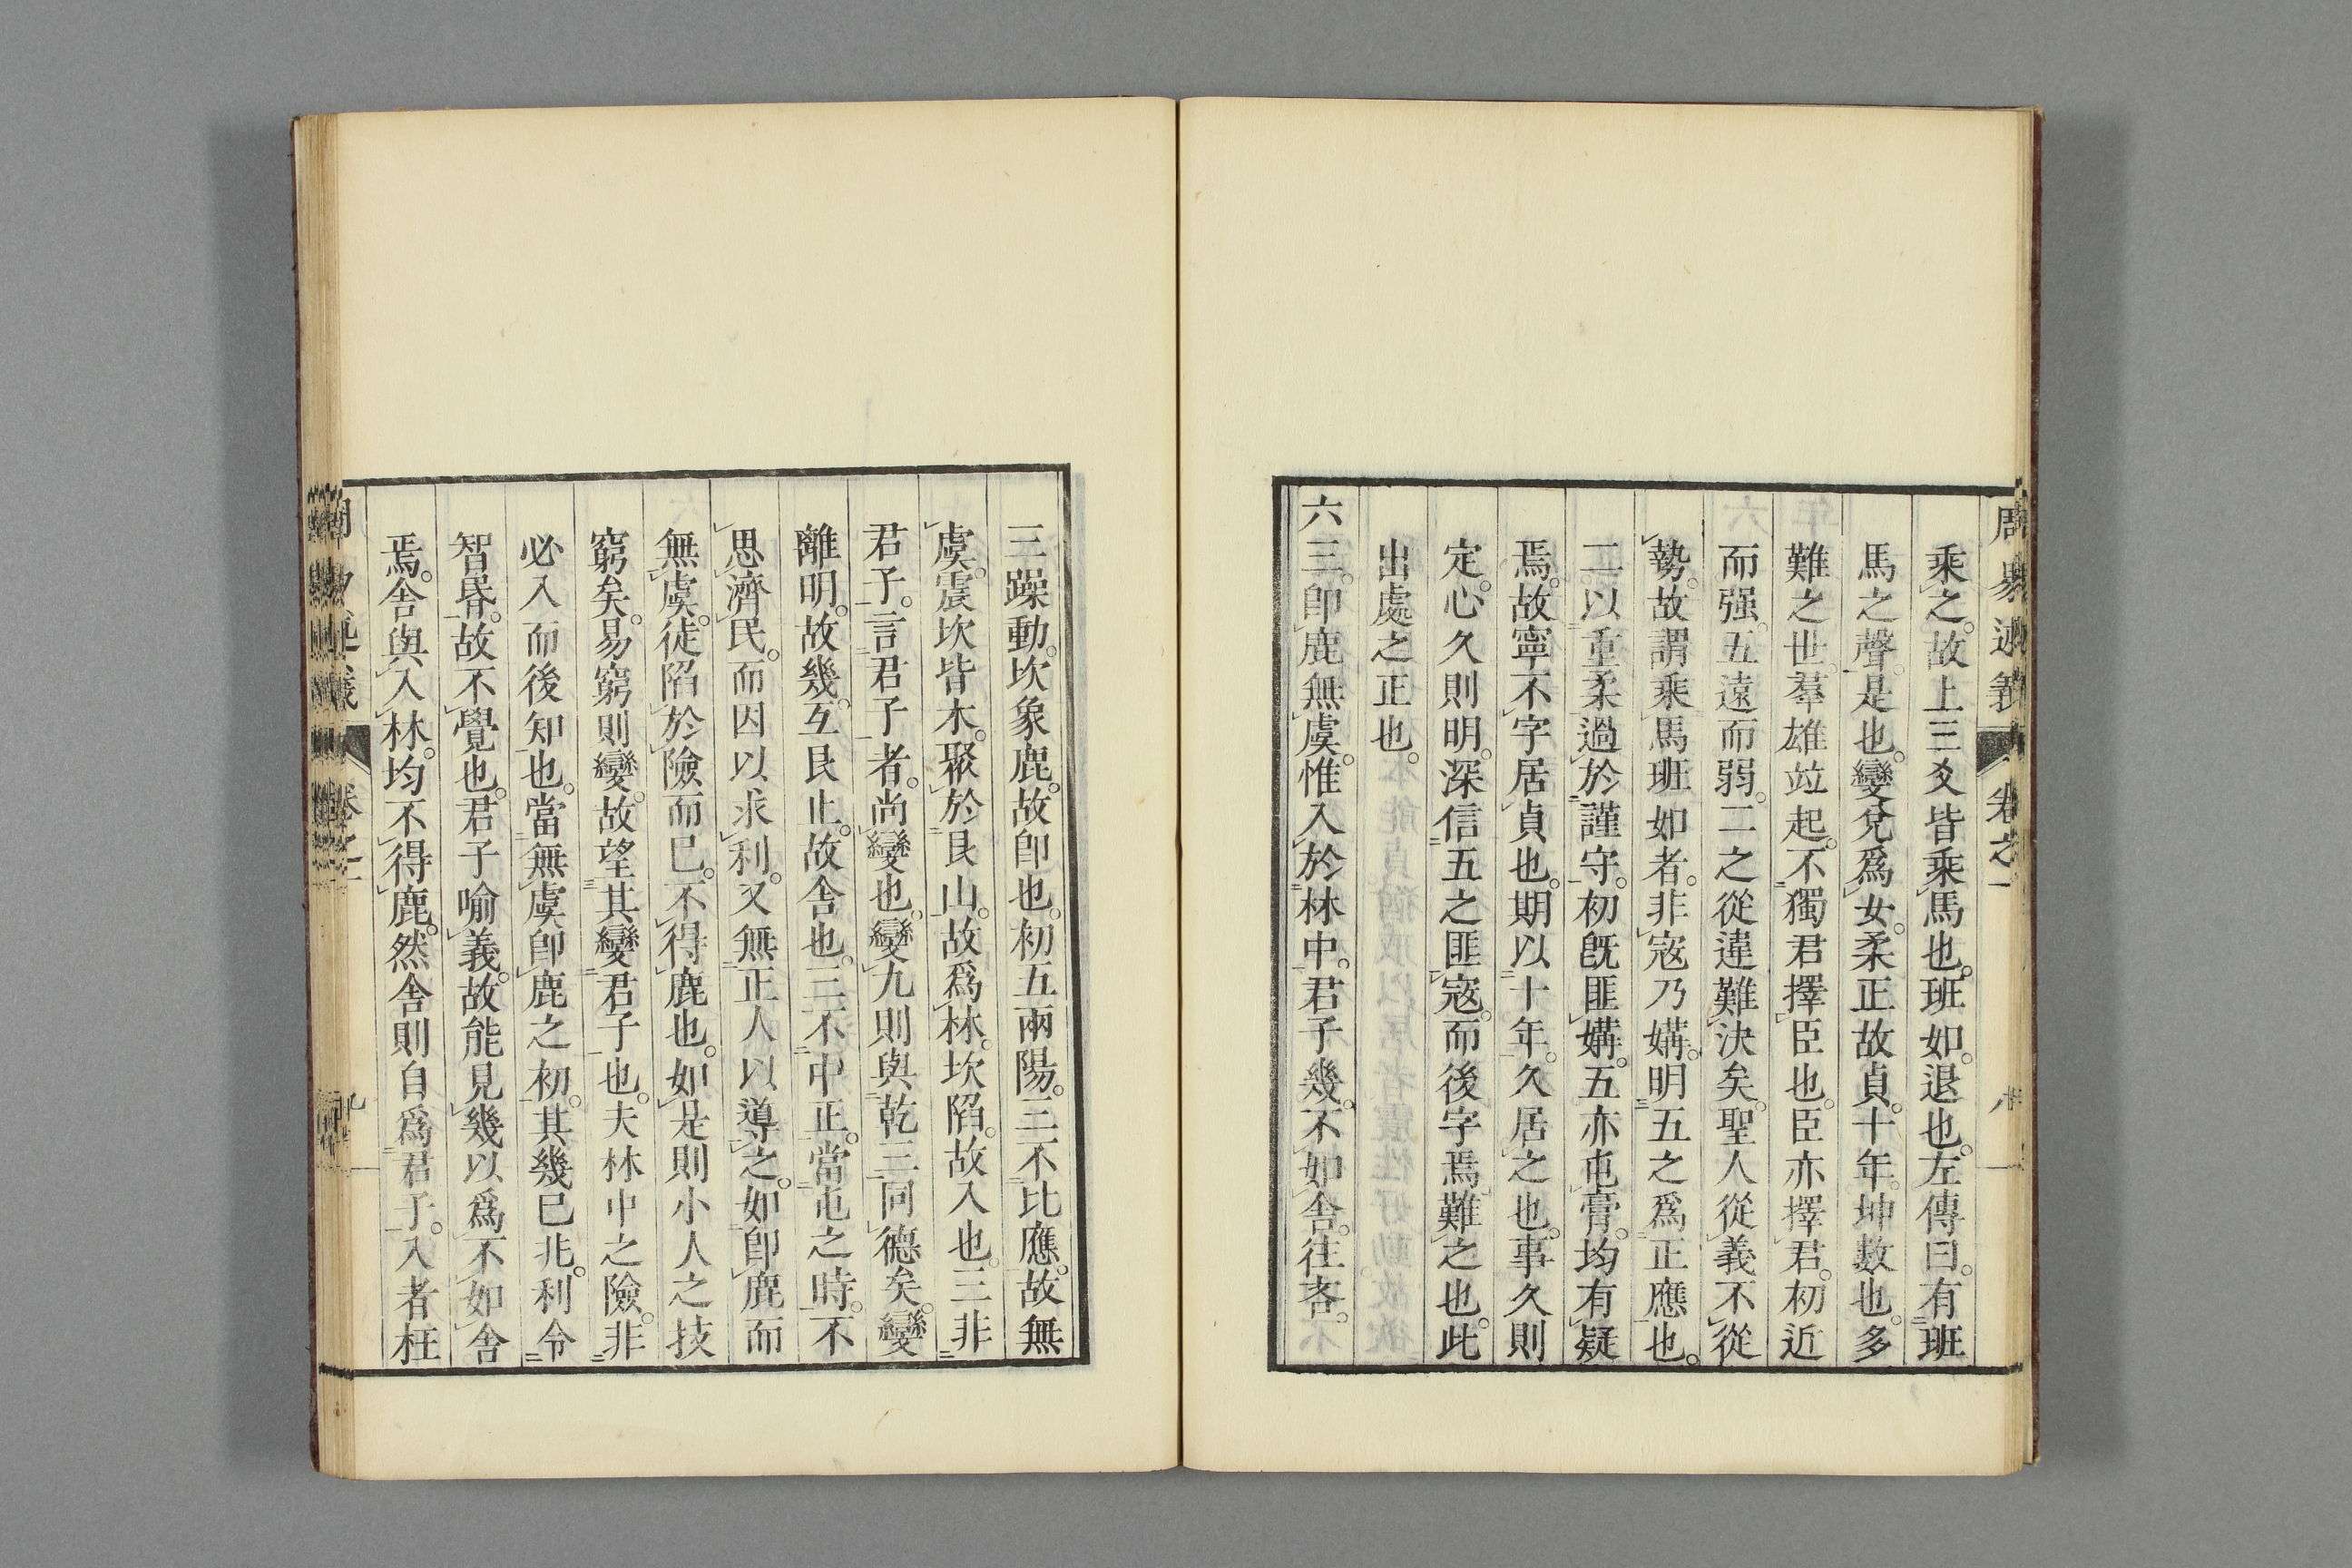 周易述義 卷之一 八
乘之。故上三爻皆乘馬也。班如。退也。左傳曰。有班
馬之聲。是也。變兌爲女。柔正故貞。十年。坤數也。多
難之世。羣雄竝起。不獨君擇臣也。臣亦擇君。初近
而强。五遠而弱。二之從違難決矣。聖人從義不從
勢。故謂乘馬班如者。非寇乃媾。明五之爲正應也。
二以重柔過於謹守。初旣匪媾。五亦屯膏。均有疑
焉。故寧不字居貞也。期以十年。久居之也。事久則
定。心久則明。深信五之匪寇。而後字焉。難之也。此
出處之正也。
六三。卽鹿無虞。惟入於林中。君子幾。不如舍。往吝。
三躁動。坎象鹿。故卽也。初五兩陽。三不比應。故無
虞。震坎皆木。聚於艮山。故爲林。坎陷。故入也。三非
君子。言君子者。尚變也。變九則與乾三同德矣。變
離明。故幾。互艮止。故舍也。三不中正。當屯之時。不
思濟民。而因以求利。又無正人以導之。如卽鹿而
無虞。徒陷於險而已。不得鹿也。如是則小人之技
窮矣。易窮則變。故望其變君子也。夫林中之險。非
必入而後知也。當無虞卽鹿之初。其幾已兆。利令
智昏。故不覺也。君子喻義。故能見幾以爲不如舍
焉。舍與入林。均不得鹿。然舍則自爲君子。入者枉
卷之一 九